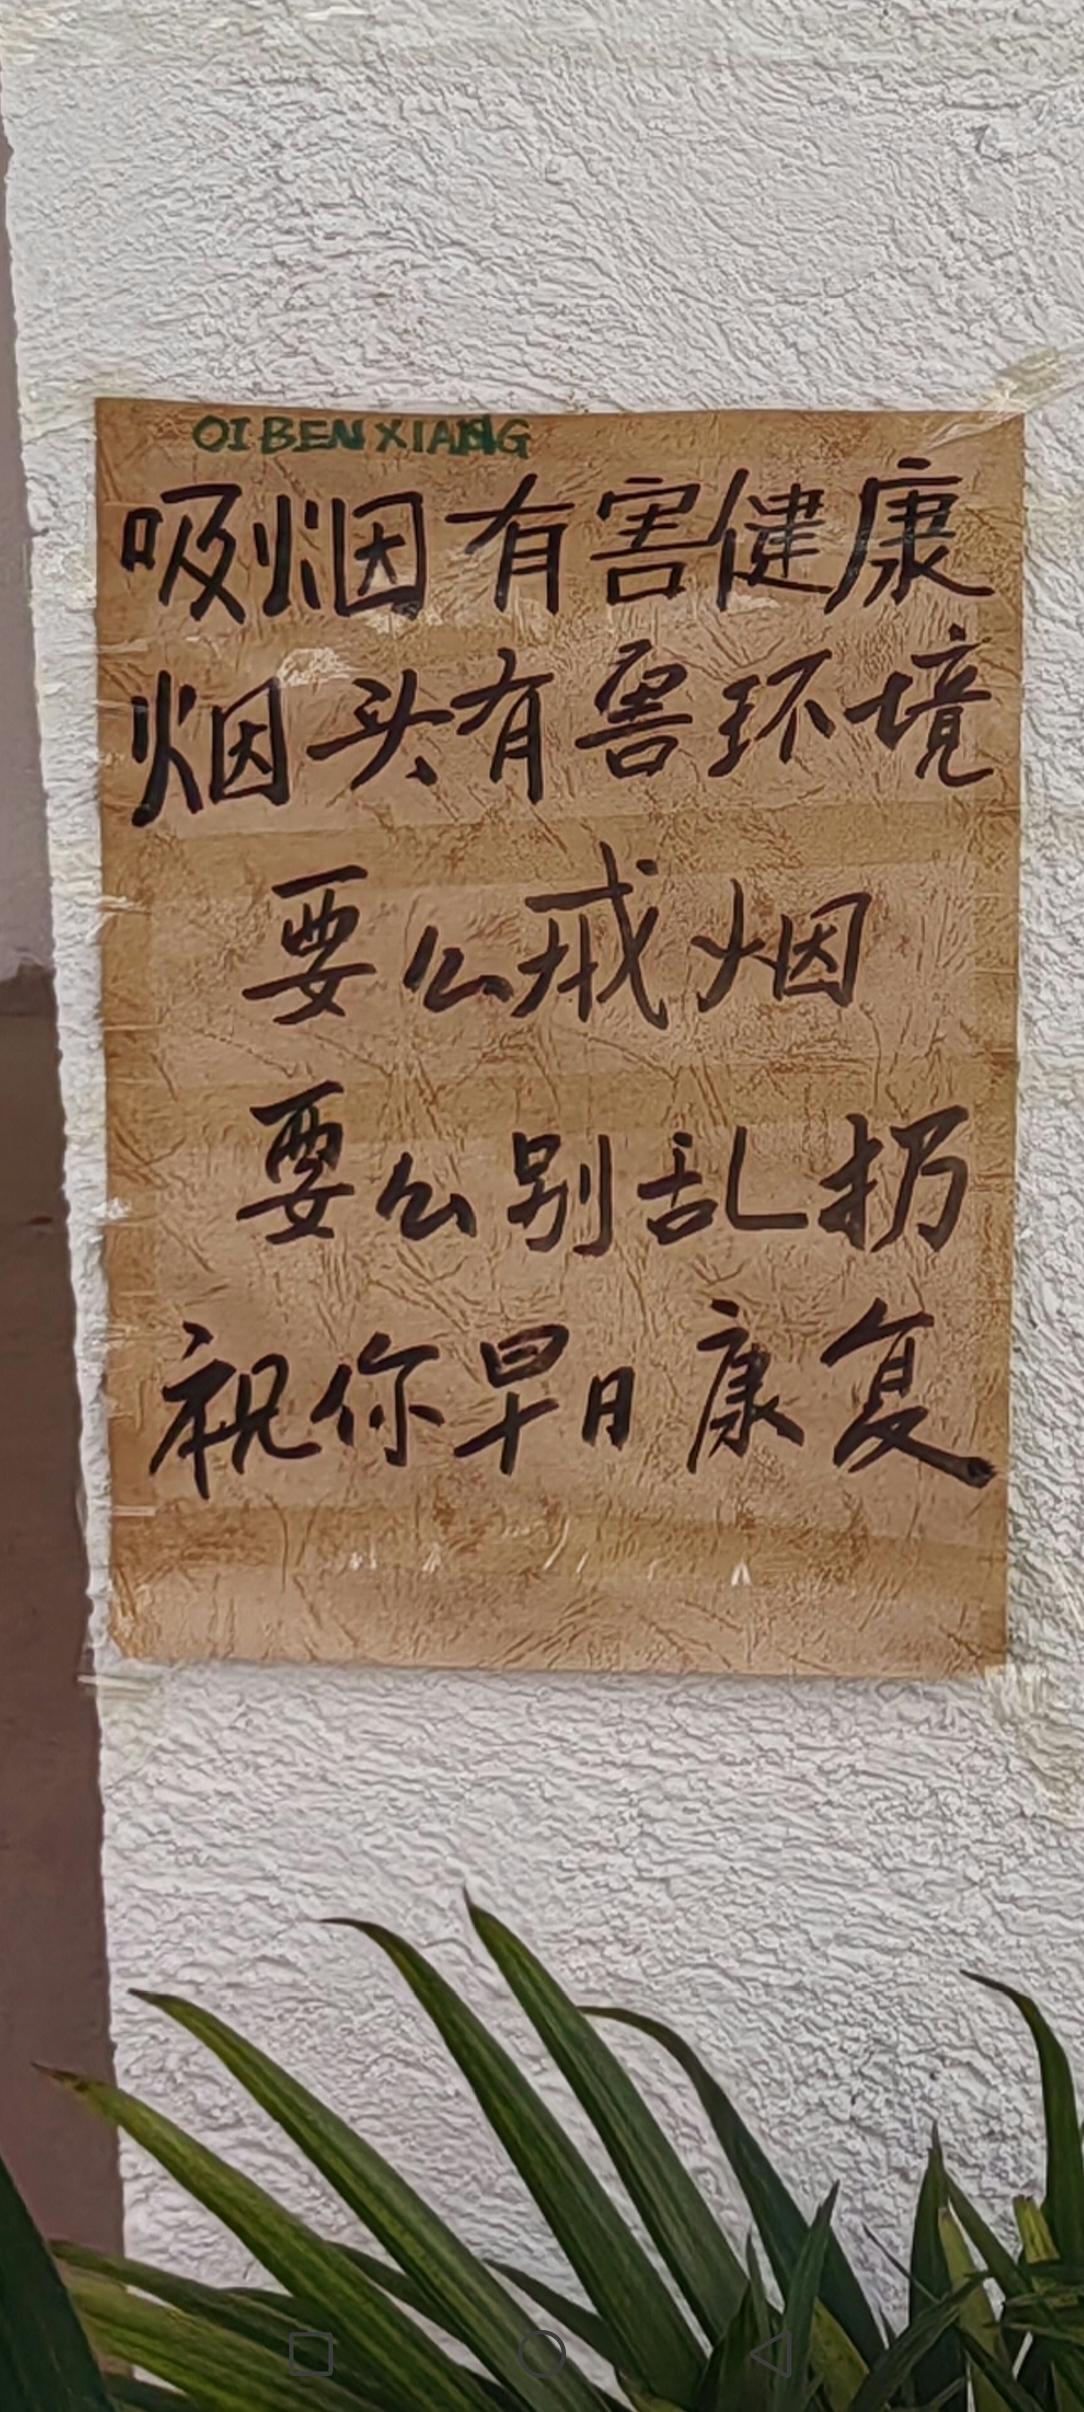 OI BEN XIANG
吸烟有害健康
烟头有害环境
要么戒烟
要么别乱扔
祝你早日康复